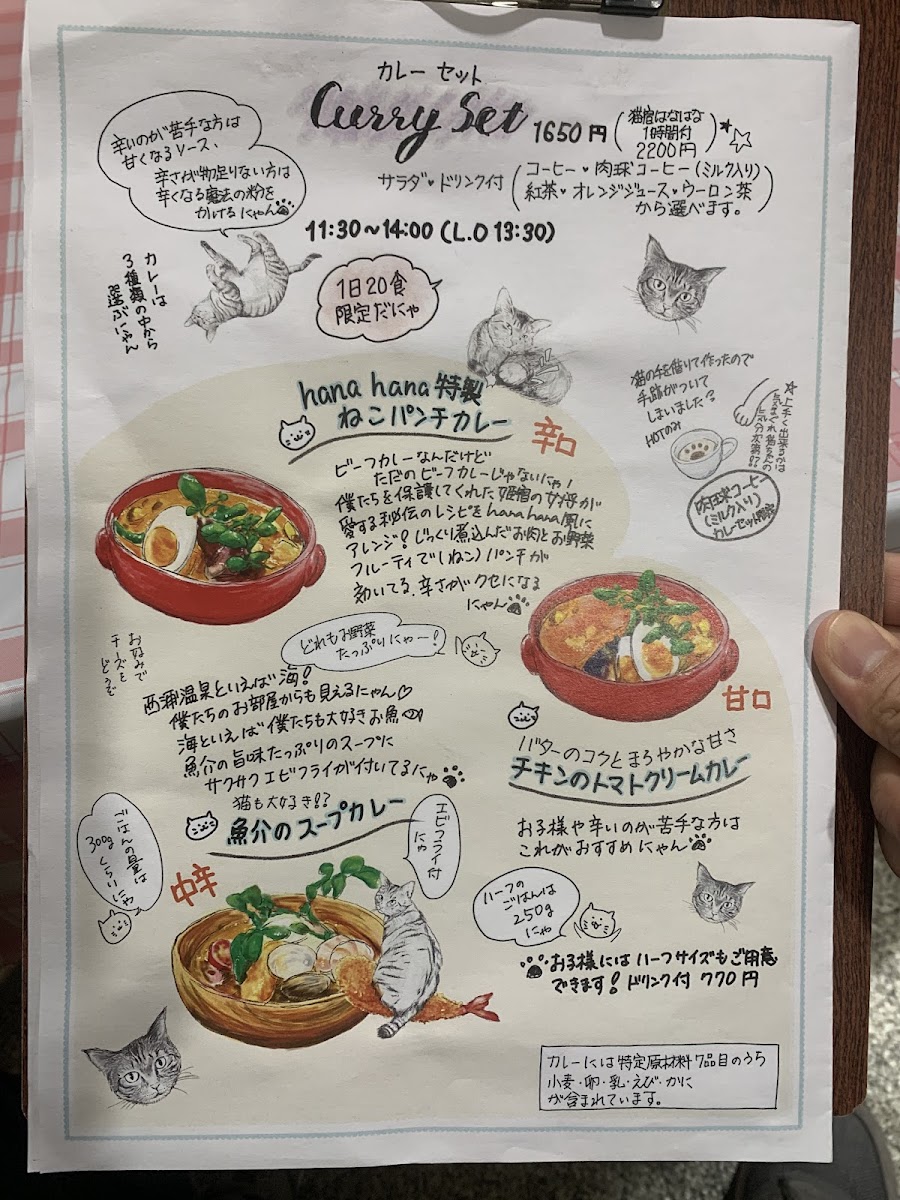 カレー セット
Curry Set
1650円
(猫宿はなばな
1時間付
2200円)
サラダ♥ドリンク付
(コーヒー♥肉球コーヒー(ミルク入り)
紅茶♥オレンジジュース♥ウーロン茶
から選べます。)
11:30~14:00 (L.O 13:30)
辛いのが苦手な方は
甘くなるソース、
辛さが物足りない方は
辛くなる魔法の粉を
かけるにゃん
カレーは
3種類の中から
選ぶにゃん
1日20食
限定だにゃ
hana hana 特製
ねこパンチカレー
辛口
ビーフカレーなんだけど
ただのビーフカレーじゃないにゃ!
僕たちを保護してくれた姫宿の女将が
愛する秘伝のレシピをhana hana風に
アレンジ!じっくり煮込んだお肉とお野菜
フルーティで(ねこ)パンチが
効いてる、辛さがクセになる
にゃん
猫の手を借りて作ったので
手跡がついて
しまいました?
HOTのみ
☆上手く出来るかは
気まぐれ猫ちゃんの
気分次第!?
肉球コーヒー
(ミルク入り)
カレーセット限定
どれもお野菜
たっぷりにゃー!
お好みで
チーズを
どうぞ
西浦温泉といえば海!
僕たちのお部屋からも見えるにゃん♡
海といえば僕たちも大好きお魚
魚介の旨味たっぷりのスープに
サクサクエビフライが付いてるにゃ
猫も大好き!?
魚介のスープカレー
中辛
エビフライ付
にゃ
ごはんの量は
300gくらいにゃ
甘口
バターのコクとまろやかな甘さ
チキンのトマトクリームカレー
お子様や辛いのが苦手な方は
これがおすすめにゃん
ハーフの
ごはんは
250g
にゃ
お子様にはハーフサイズもご用意
できます!ドリンク付 770円
カレーには特定原材料7品目のうち
小麦・卵・乳・えび・かに
が含まれています。